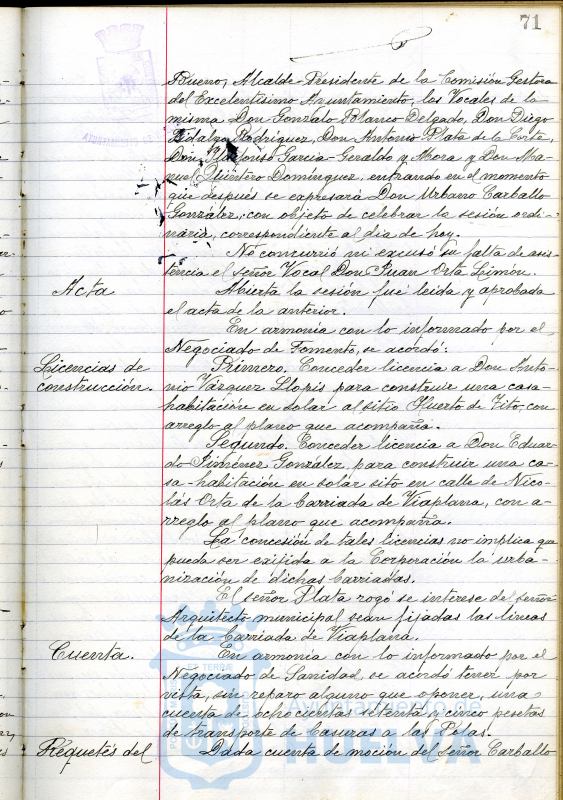 71
Bueno, Alcalde-Presidente de la Comisión Gestora
del Excelentísimo Ayuntamiento, los Vocales de la
misma Don Gonzalo Blanco Delgado, Don Diego
Hidalgo Rodríguez, Don Antonio Plata de la Corte,
Don Ildefonso García-Geraldo y Mora y Don Ma-
nuel Quintero Domínguez, entrando en el momento
que después se expresará Don Urbano Carballo
González, con objeto de celebrar la sesión ordi-
naria, correspondiente al día de hoy.
No concurrió ni excusó su falta de asis-
tencia el señor Vocal Don Juan Orta Limón.
Acta. Abierta la sesión fué leida y aprobada
el acta de la anterior.
En armonía con lo informado por el
Negociado de Fomento, se acordó:
Licencias de Primero. Conceder licencia a Don Anto-
construcción. nio Vázquez Llopis para construir una casa-
habitación en solar al sitio Huerto de Tito, con
arreglo al plano que acompaña.
Segundo. Conceder licencia a Don Eduar-
do Jiménez González, para construir una ca-
sa-habitación en solar sito en calle de Nico-
lás Orta de la Barriada de Viaplana, con a-
rreglo al plano que acompaña.
La concesión de tales licencias no implica que
pueda ser exijida a la Corporación la urba-
nización de dichas barriadas.
El señor Plata rogó se interese del señor
Arquitecto municipal sean fijadas las líneas
de la Barriada de Viaplana.
Cuenta. En armonía con lo informado por el
Negociado de Sanidad, se acordó tener por
vista, sin reparo alguno que oponer, una
cuenta de ochocientas setenta y cinco pesetas
de transporte de basuras a las
Requetés del Dada cuenta de moción del señor Carballo
Ayuntamiento de
HUELVA